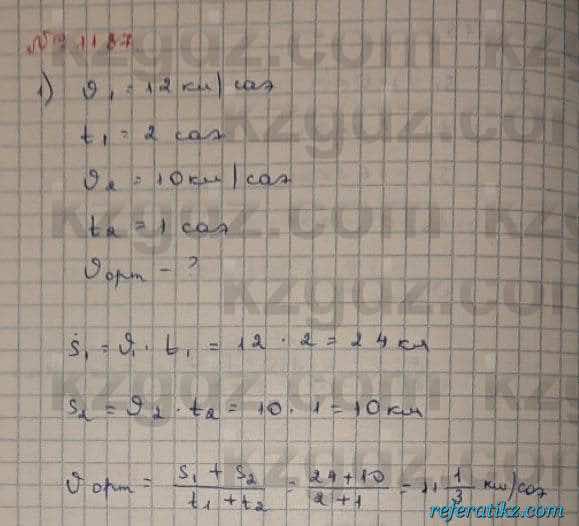 № 1187
1) ϑ₁ = 12 км/сағ
t₁ = 2 сағ
ϑ₂ = 10 км/сағ
t₂ = 1 сағ
ϑорт - ?
S₁ = ϑ₁ · t₁ = 12 · 2 = 24 км
S₂ = ϑ₂ · t₂ = 10 · 1 = 10 км
ϑорт = (S₁ + S₂)/(t₁ + t₂) = (24+10)/(2+1) = 11 1/3 км/сағ
kzgdz.com
referatikz.com